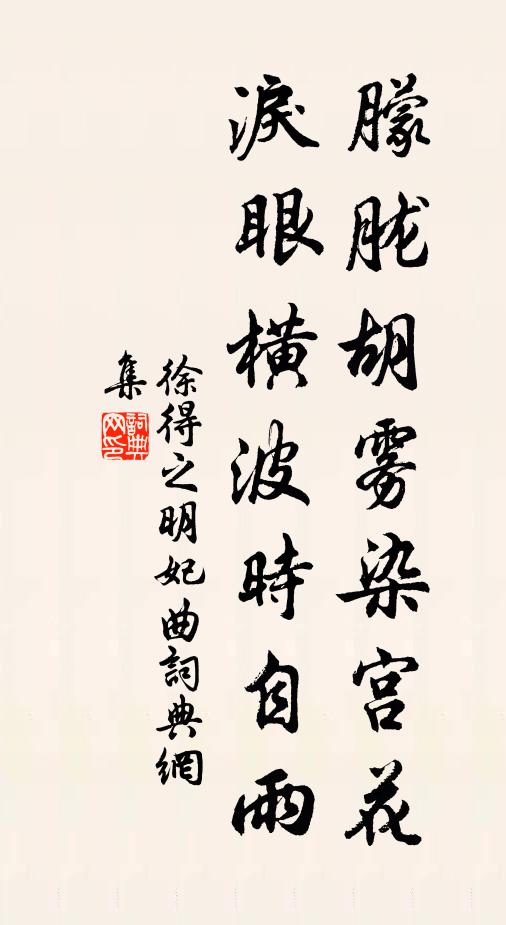 朦胧胡雾染宫花
淚眼橫波時自雨
徐得之明妃曲詞典網
集
詞典网印